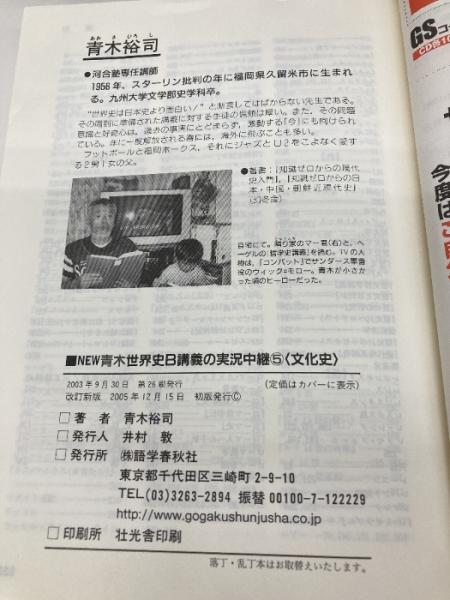 あお き ひろ し
青木裕司
●河合塾専任講師
1956年，スターリン批判の年に福岡県久留米市に生まれ
る。九州大学文学部史学科卒。
"世界史は日本史より面白い！"と断言してはばからない先生である。
その周到に準備された講義に対する生徒の信頼は厚い。また，その問題
意識と好奇心は，過去の事実にとどまらず，激動する「今」にも向けられ
ている。年に一度解放される春には，海外に飛ぶことも多い。
フットボールと福岡ホークス，それにジャズとU2をこよなく愛す
る2男1女の父。
●著書：『知識ゼロからの現代
史入門』，『知識ゼロからの日
本・中国・朝鮮近現代史』
(幻冬舎)
自宅にて。隣り家のマー君(右)と，ヘ
ーゲルの『哲学史講義』を読む。TVの人
物は，「コンバット」でサンダース軍曹
役のヴィック=モロー。青木が小さか
った頃のヒーローだった。
■NEW青木世界史B講義の実況中継⑤〈文化史〉
2003年9月30日 第26刷発行
(定価はカバーに表示)
改訂新版 2005年12月15日 初版発行Ⓒ
□著者 青木裕司
□発行人 井村敦
□発行所 ㈱語学春秋社
東京都千代田区三崎町2-9-10
TEL(03)3263-2894 振替 00100-7-122229
http://www.gogakushunjusha.co.jp
□印刷所 壮光舎印刷
落丁・乱丁本はお取替えいたします。
GSコ
CD各10
今度は